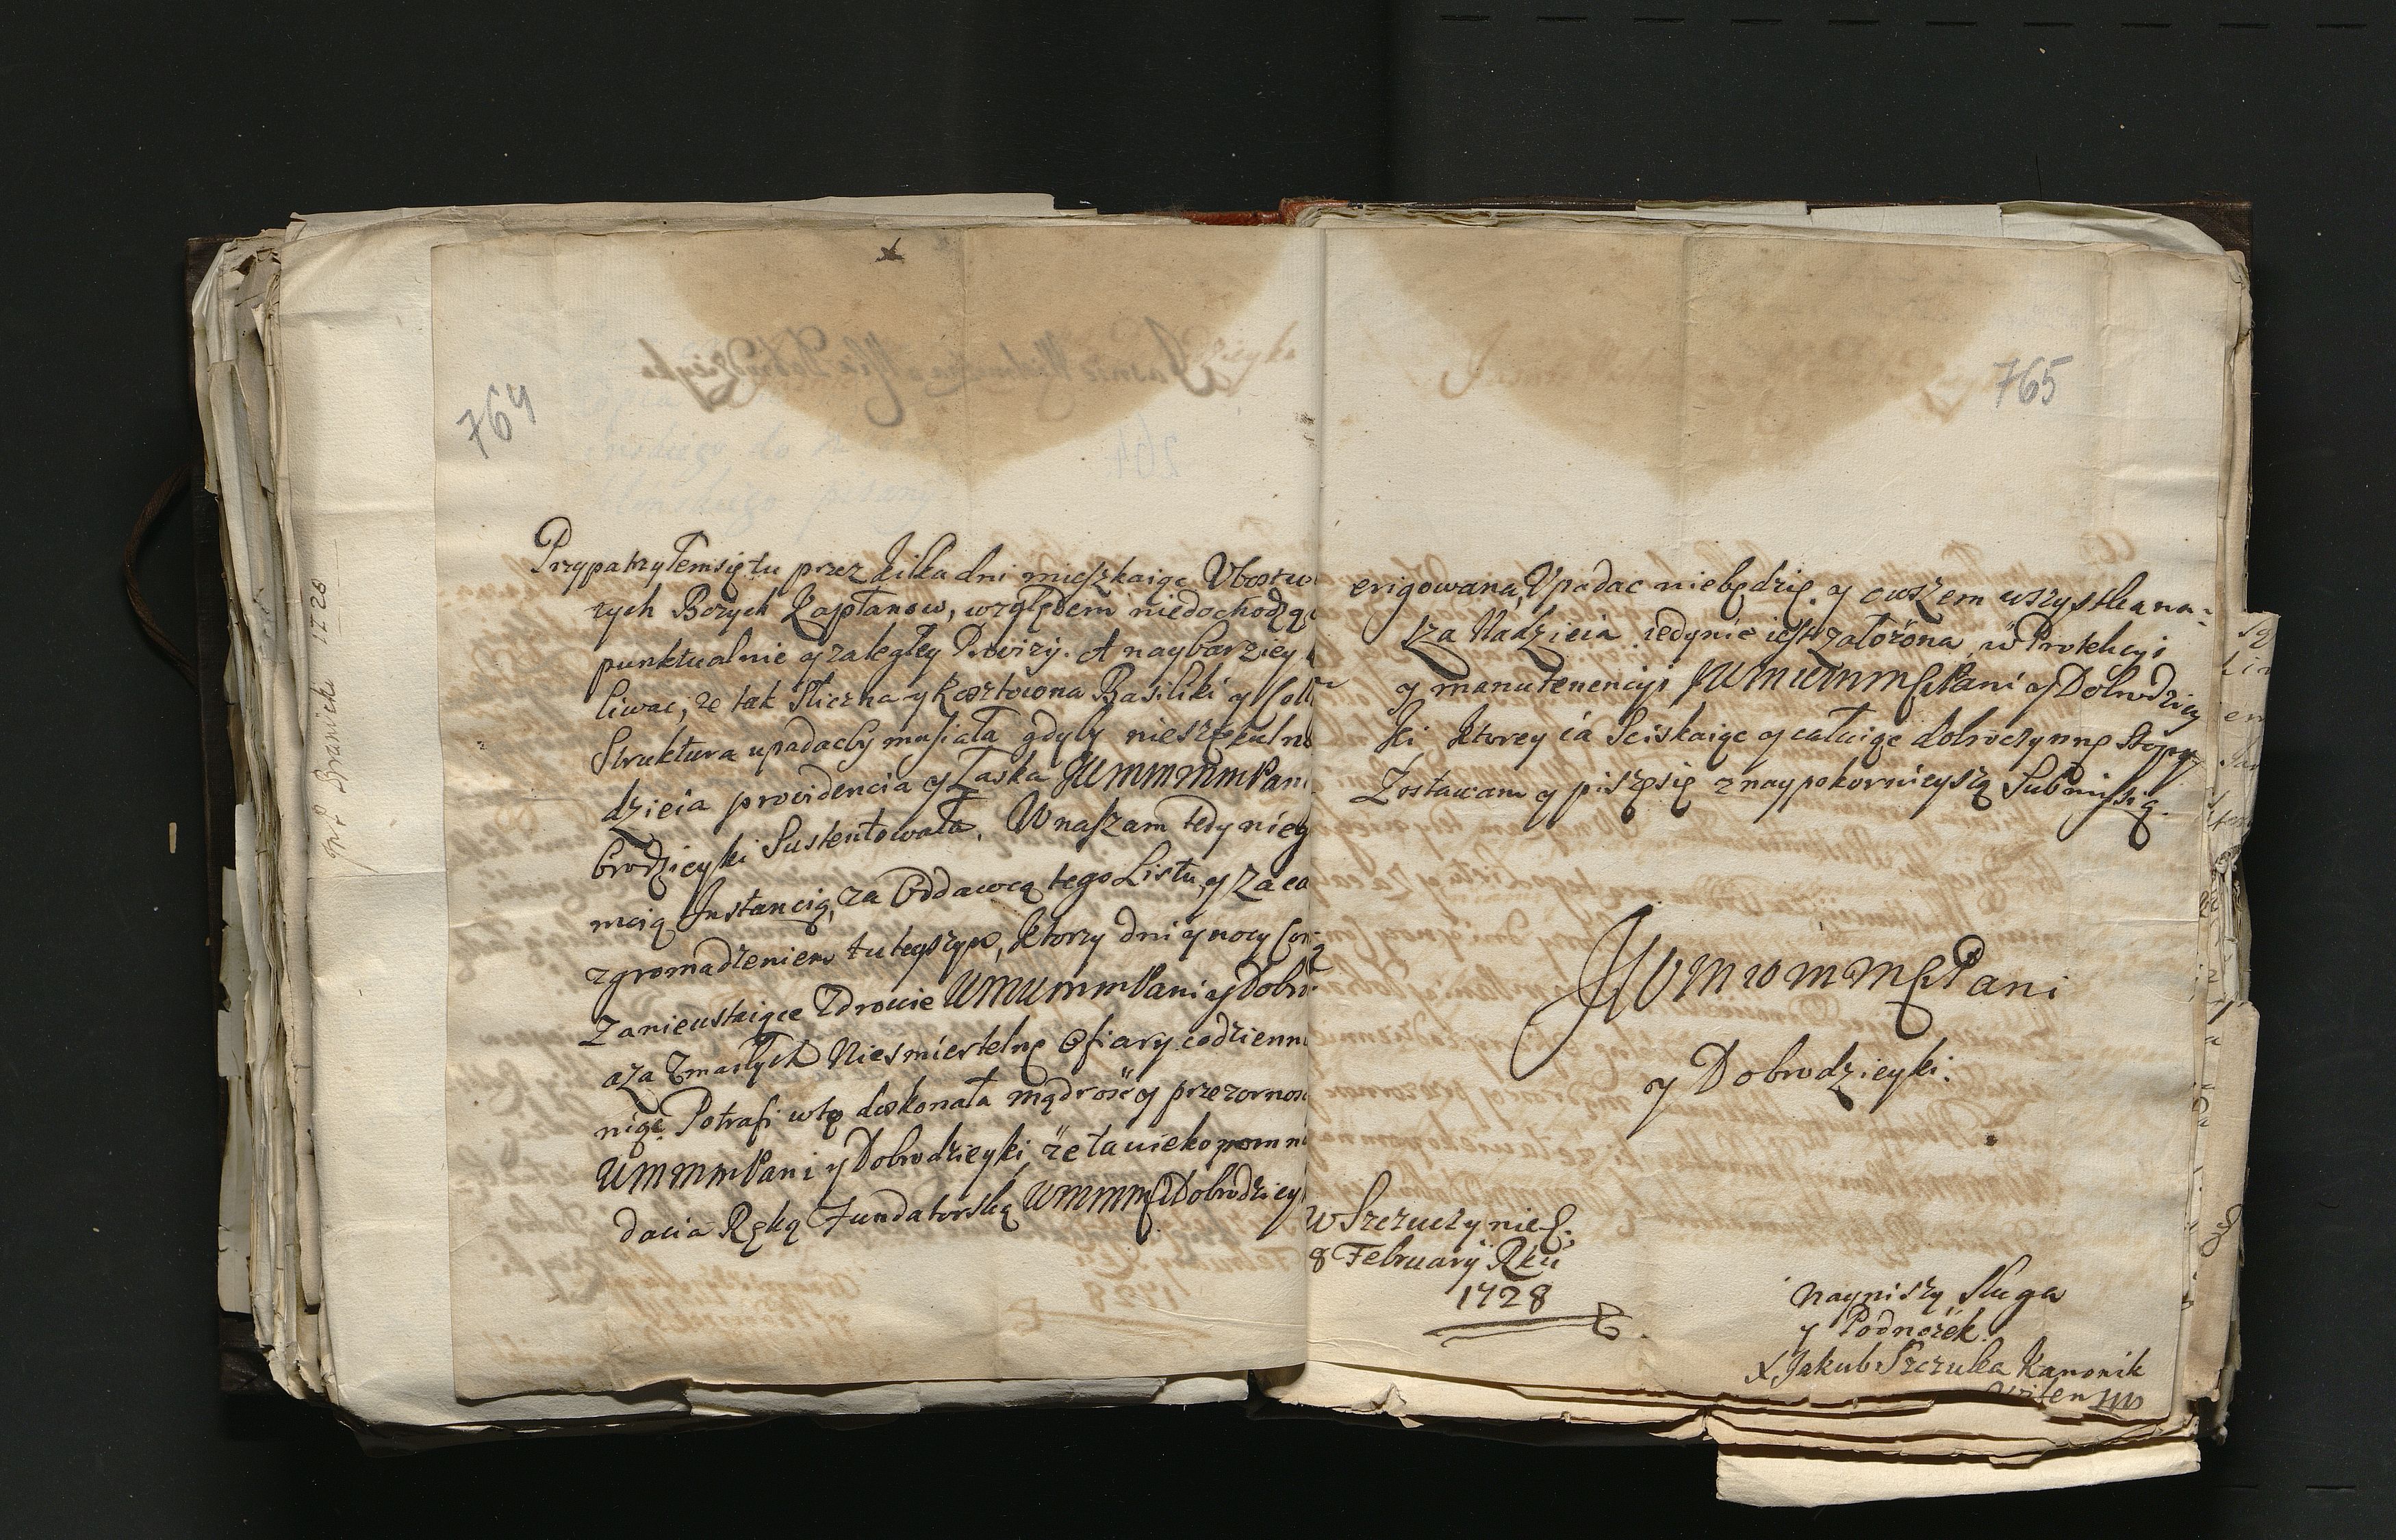 764
Przypatrzyłemsię tu przez kilka dni mieszkaiąc Vbostw
rych Bozych Kapłanow, względem niedochodzą
punktualnie y zaległey Prowizy. A naybarziey
liwac, ze tak sliczna y kosztowna Basiliki y Coll
Struktura upadacby musiała gdyby nieszczegulna
dzieia providencia y Łaska JWMMMMPani
brodzieyki Sustentowała. Wnaszam tedy
mcią Instancią, za Oddawcą tego Listu, y za ca
zgromadzeniem tuteyszym, ktorzy dni y nocy
Zanieustaiące Zdrowie WMWMMPani y Dobro
aza Zmarłych Niesmiertelne Ofiary codzienn
niąc. Potrafi wtę doskonała mądrość y przezornosc
WMMMPani y Dobrodzieyki ze ta wiekopomn
dacia Ręką Fundatorską WMMMP Dobrodziey
JmP Branicki 1728
765
erigowana, Vpadac niebędzie. y owszem wszystka na-
sza Nadzieia iedynie iest załozona, w Protekcyi
y manutenencyi JWMWMMPPani y Dobrodziey
ki ktorey ia Sciskaiąc y całuiąc dobroczynne Stopy
Zostawam y piszęsię znaypokornieyszą Submissią.
JWMWMMPPani
y Dobrodzieyki.
w Szczuczynie
8 February Rku
1728
Nayniszy Sługa
y Podnożek
X Jakub Szczuka Kanonik